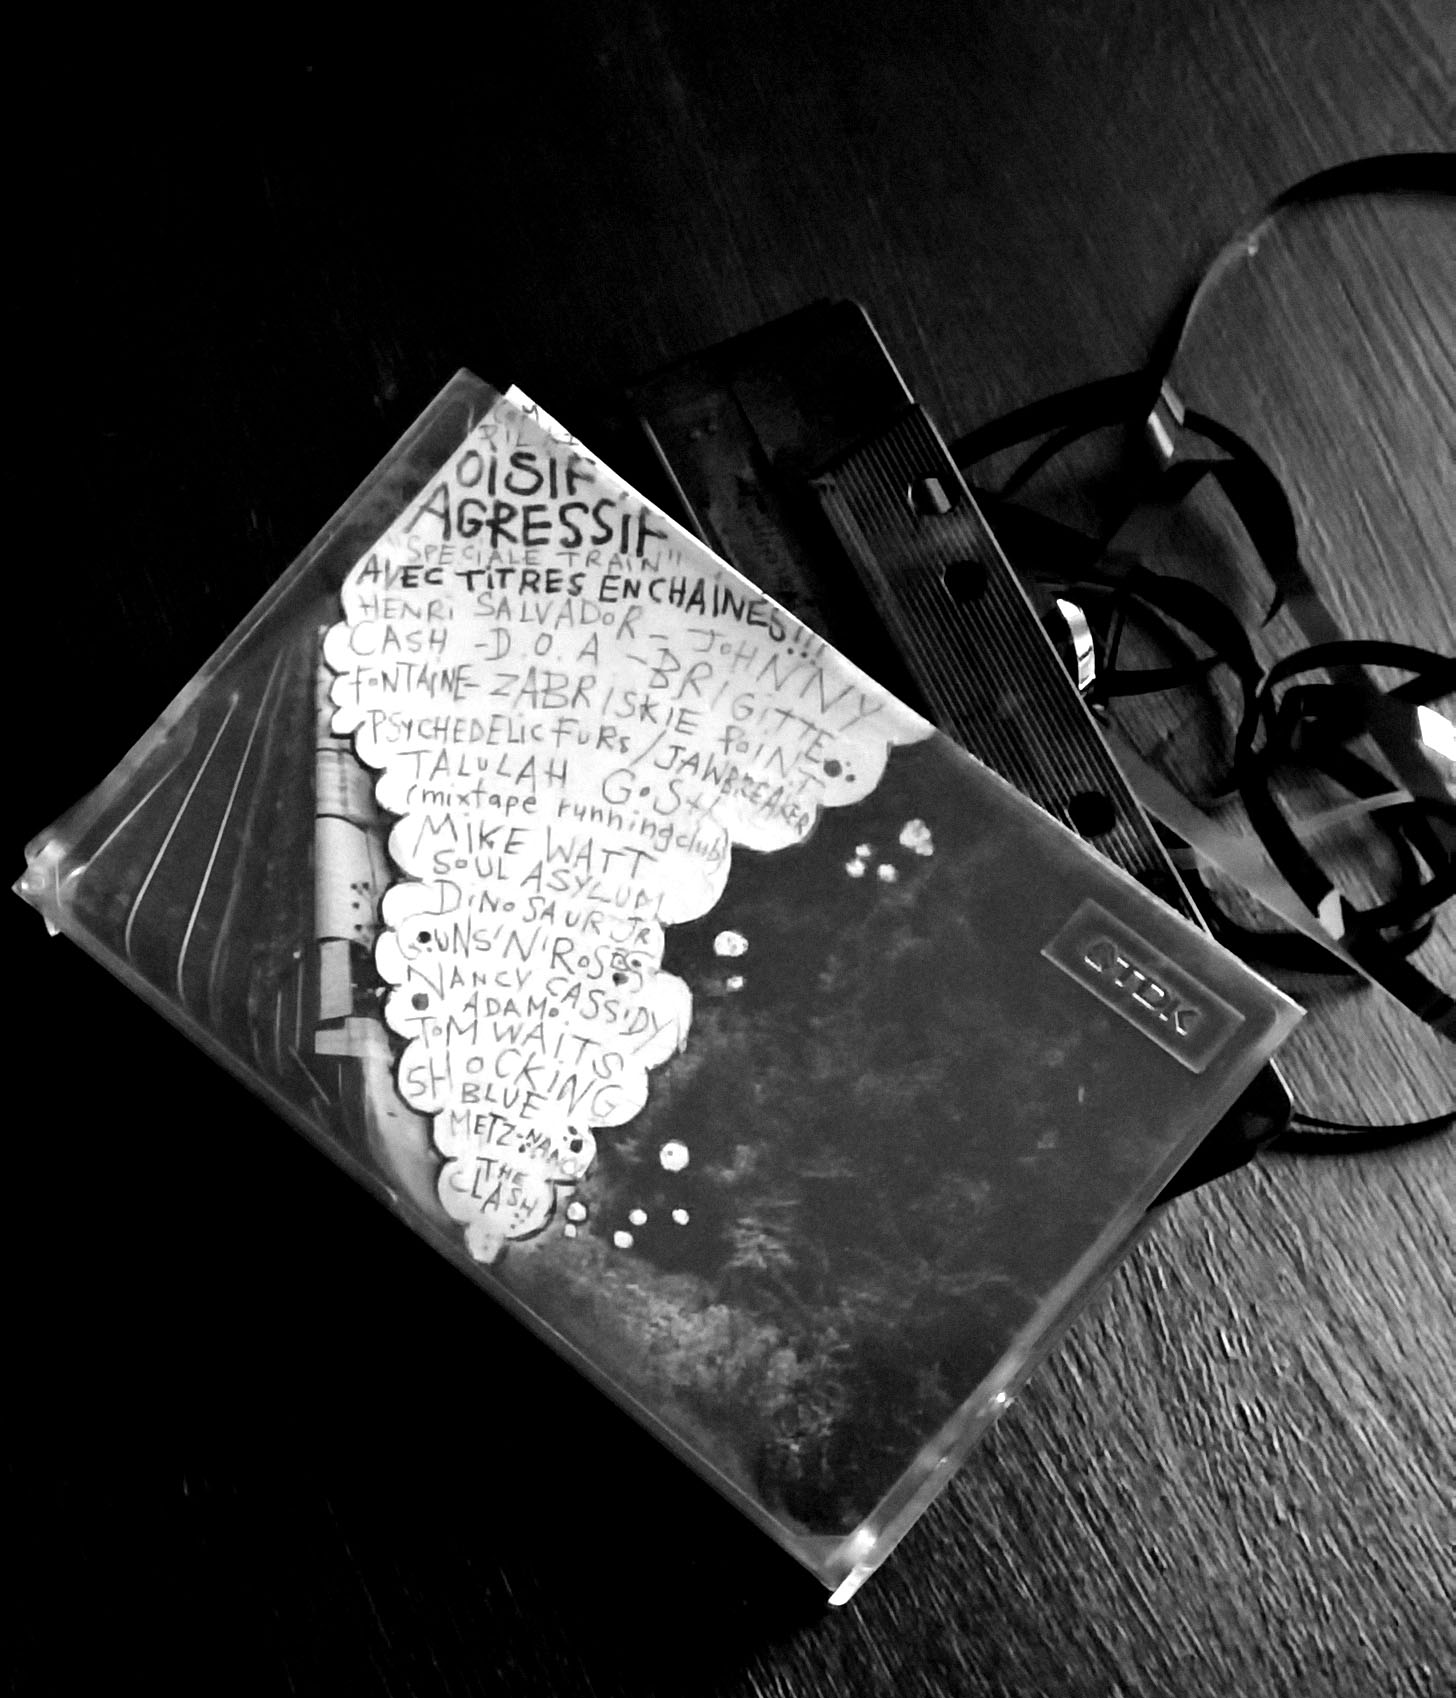 OiSiF
AGRESSIF
"SPECIALE TRAIN"
AVEC TiTRES ENCHAINÉS!!!
HENRi SALVADOR - JOHNNY
CASH - D.O.A - BRiGiTTE
FONTAINE - ZABRISKIE POINT
PSYCHEDELiC FURS / JAWBREAKER
TALULAH GOSH
(mixtape running club)
MIKE WATT
SOUL ASYLUM
DiNOSAUR JR
GUNS'N'ROSES
NANCY CASSIDY
ADAM
TOM WAITS
SHOCKiNG
BLUE
METZ-
THE
CLASH
TDK